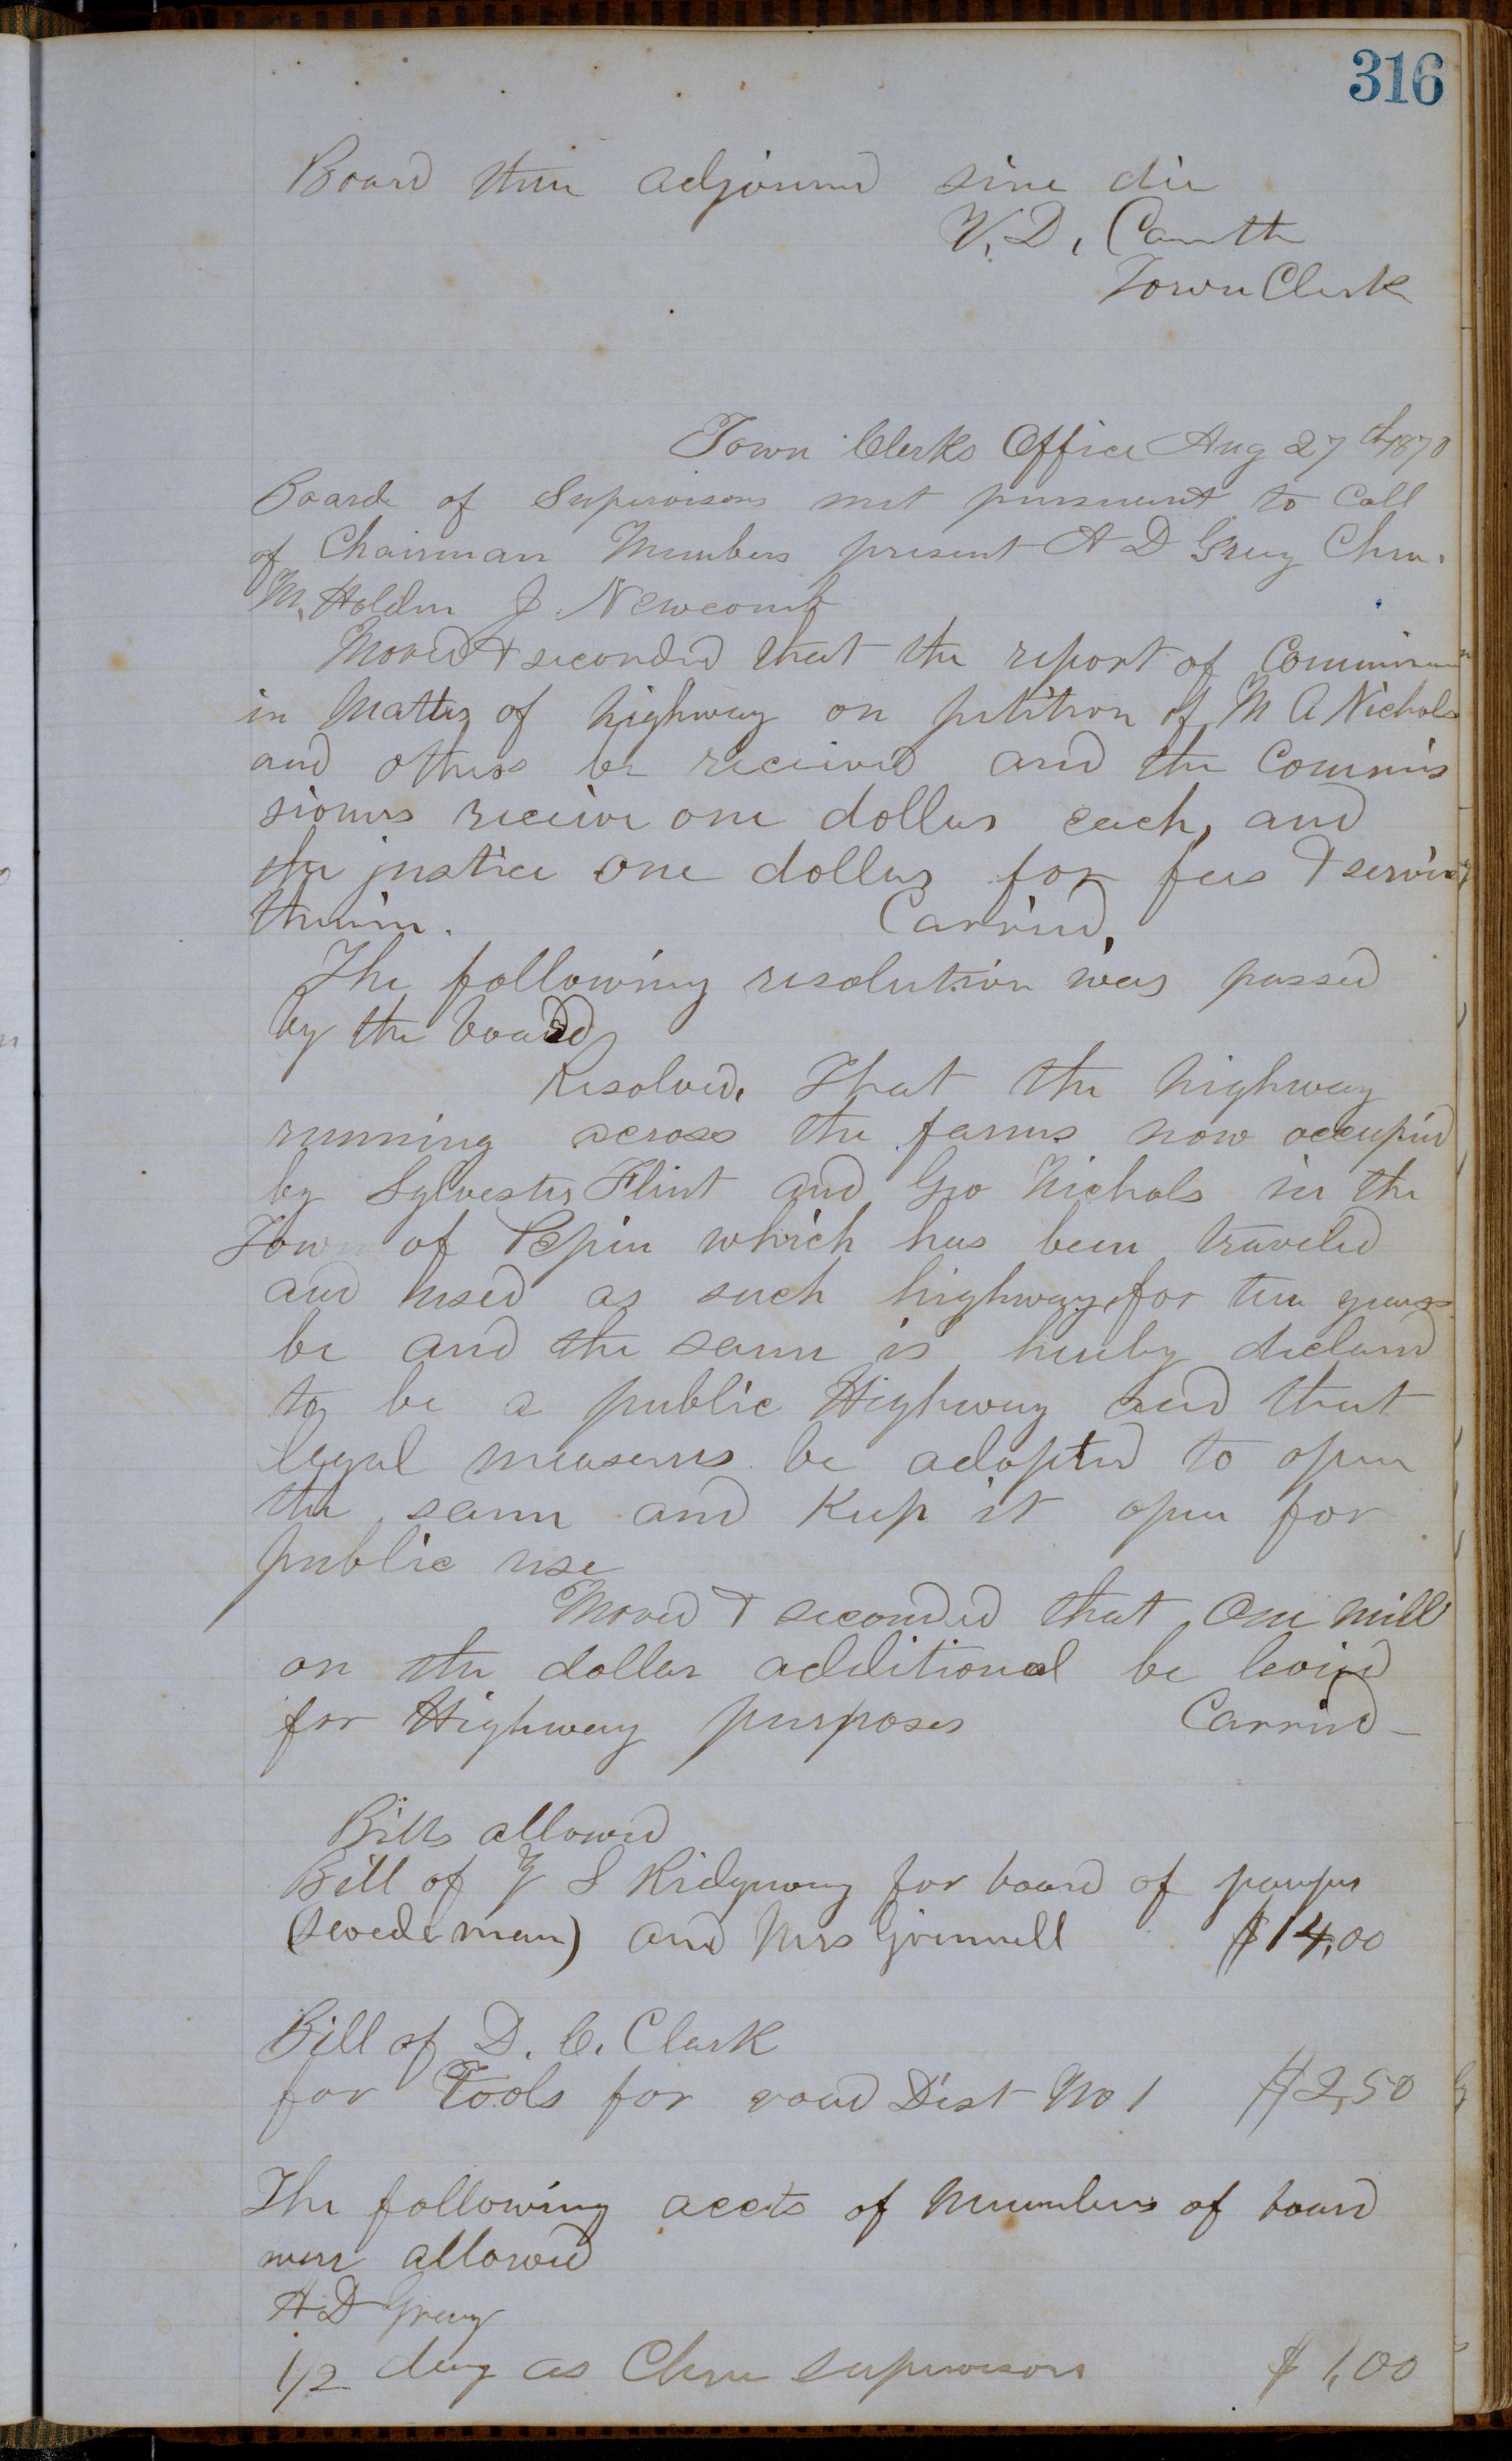 316
Board then adjourned sine die
V. D. Carruth
Town Clerk
Town Clerks Office Aug 27th 1870
Board of Supervisors met pursuant to Call
of Chairman Members present A D Gray Chm.
M. Holden J. Newcomb
Moved & seconded that the report of Commissioners
in Matter of highway on petition of M A Nichols
and others be received and the Commis
sioners receive one dollar each, and
the justice one dollar for fees & services
therein. Carried,
The following resolution was passed
by the board
Resolved, That the highway
running across the farms now occupied
by Sylvester Flint and Geo Nichols in the
Town of Pepin which has been traveled
and used as such highway for ten years
be and the same is hereby declared
to be a public Highway and that
legal measures be adopted to open
the same and Keep it open for
public use
Moved & seconded that One mill
on the dollar additional be levied
for Highway purposes Carried –
Bills allowed
Bill of Y S Ridgway for board of pauper
(swede man) and Mrs Grinnell $14,00
Bill of D. C. Clark
for Tools for road Dist No 1 $2,50
The following accts of Members of board
were allowed
A D Gray
1/2 day as Chm supervisors $1,00